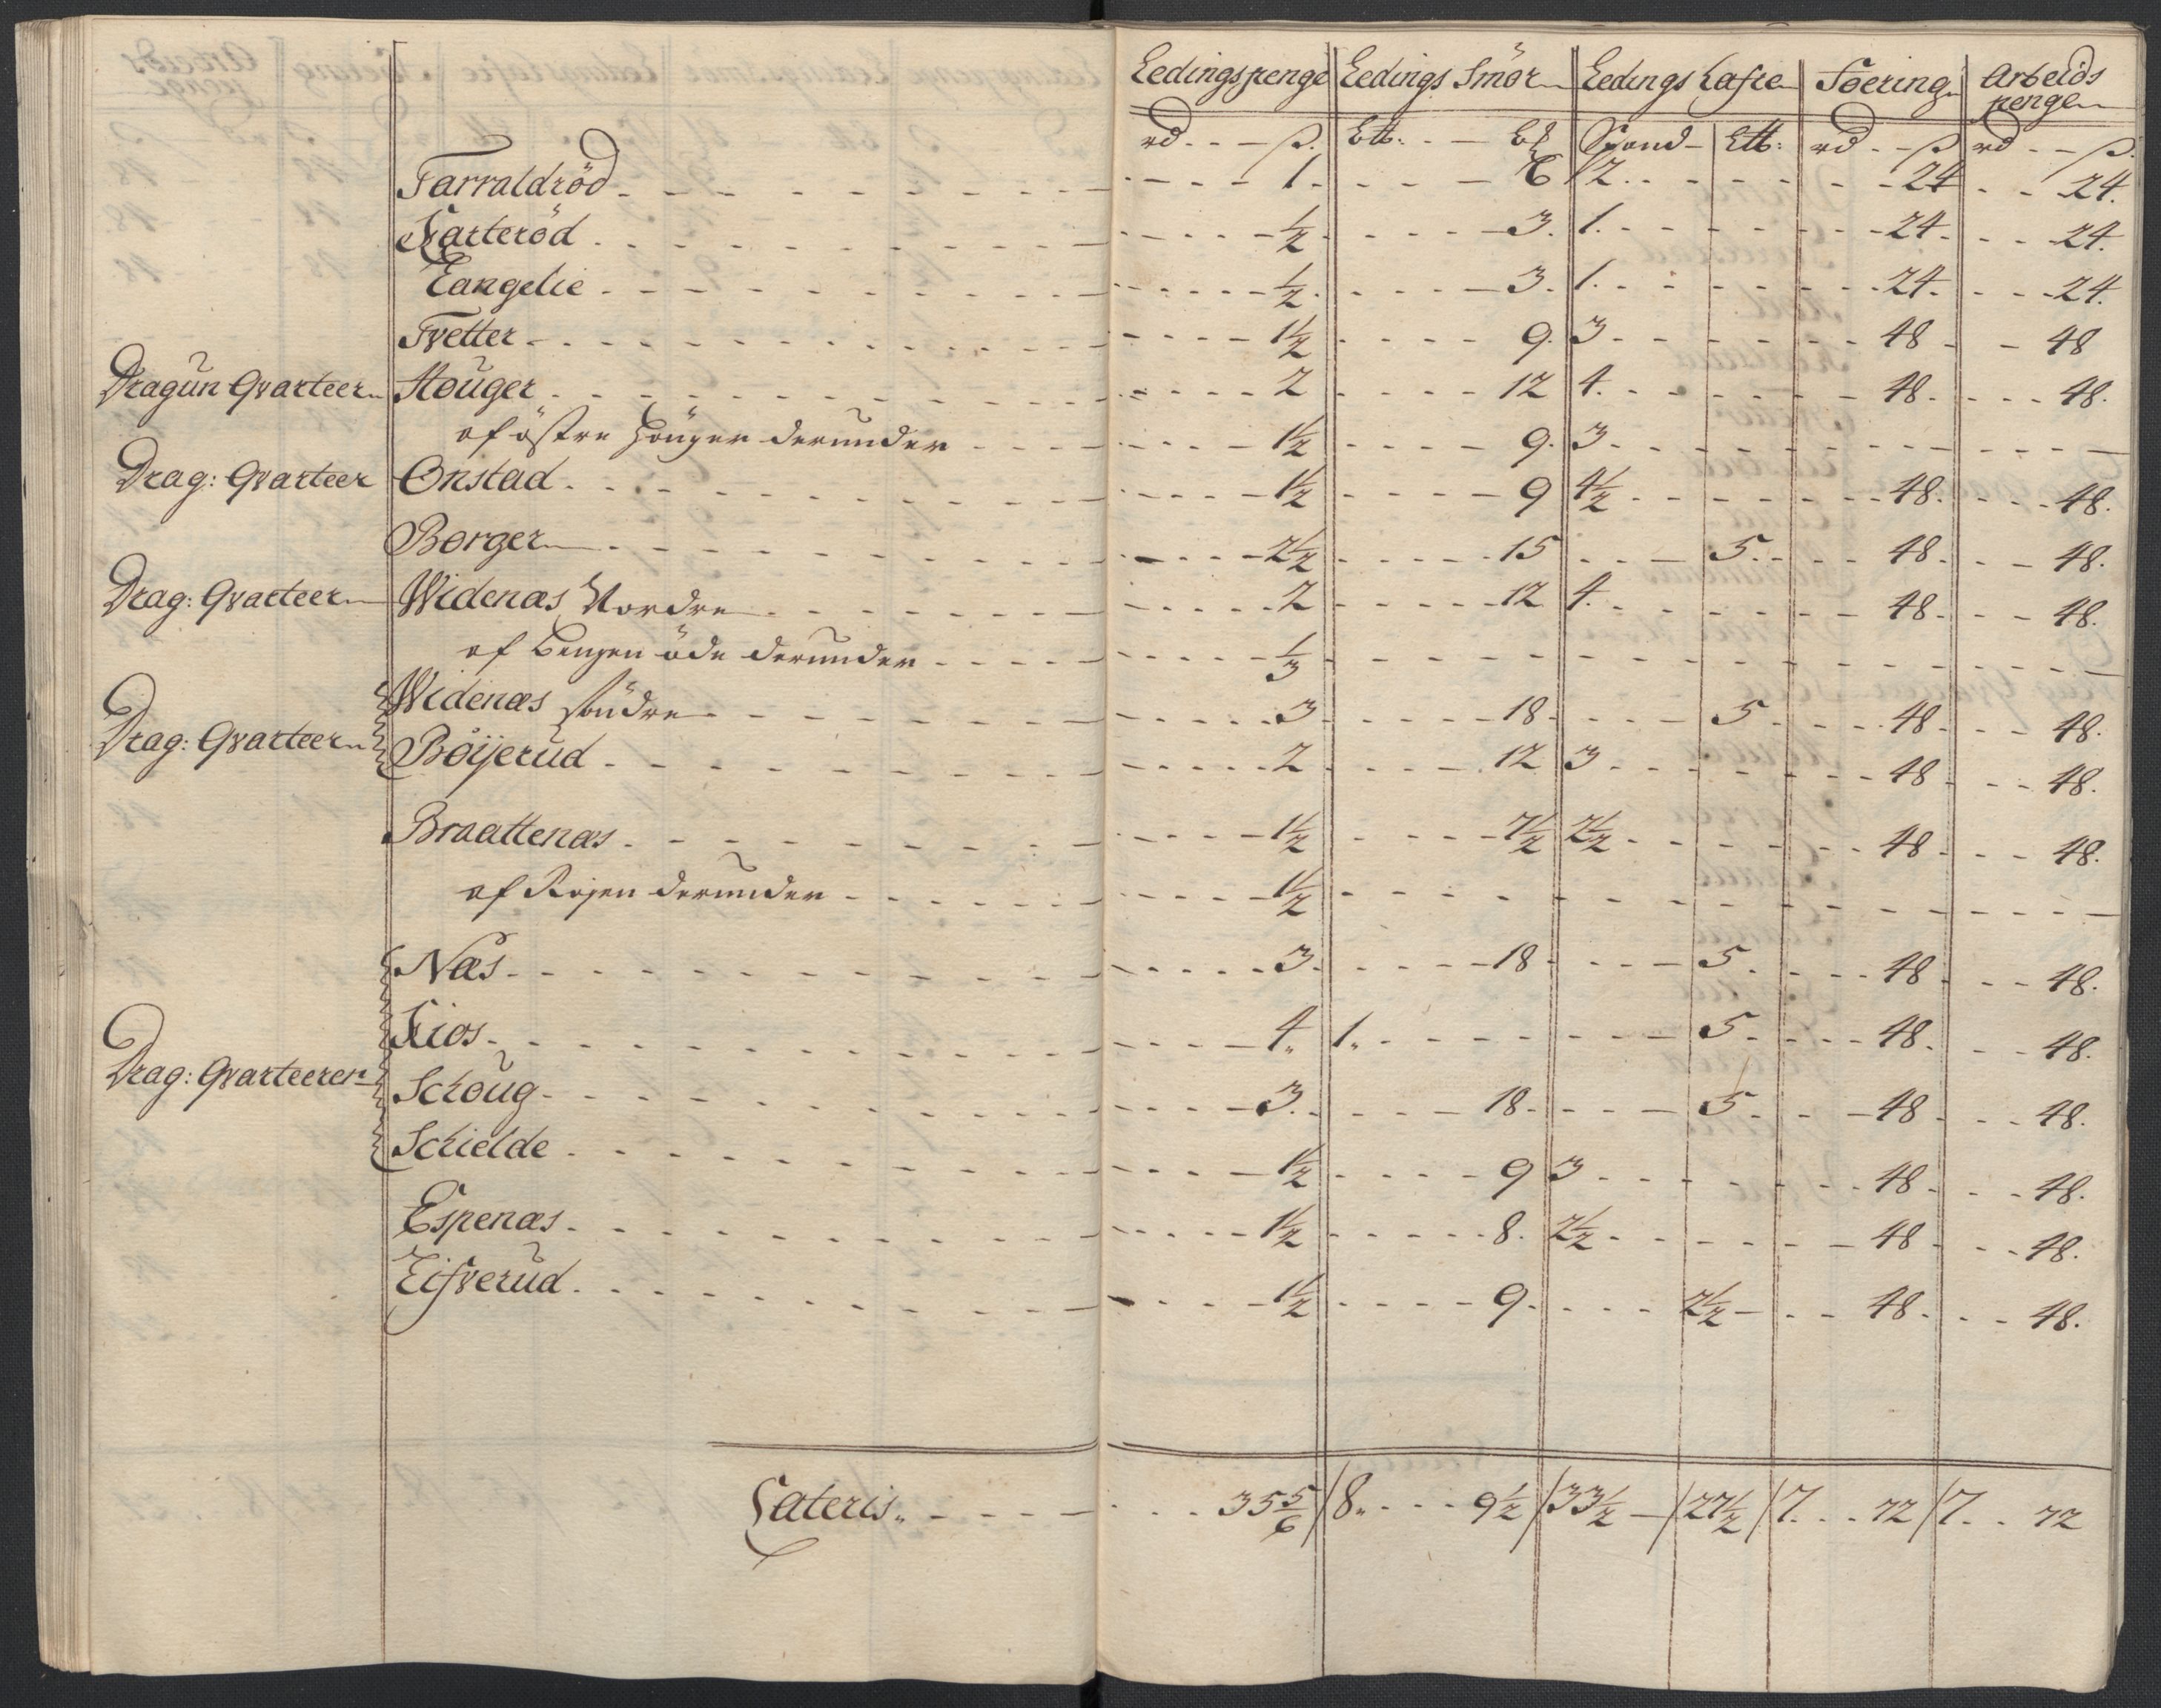 Ledingspenge Ledings Smör Ledings Lafte Foering Arbeids penge
rd - - - ß. Ltt: - - Lt Spand - Ltt: rd - - ß rd - - ß.
Tarraldröd - - - 1. - - - 6 2. - - - 24 - - 24.
Karteröd - - - 1/2 - - - 3. 1. - - - 24. - - 24.
Langelie - - - 1/2. - - - 3. 1. - - - 24. - - 24.
Tvetter - - - 1 1/2 - - - 9. 3 - - - 48 - - 48
Dragun Qvarteer Houger - - - 2 - - - 12 4. - - - 48. - - 48.
af östre Houger derunder - - - 1 1/2 - - - 9. 3 - - -
Drag: Qvarteer Onstad - - - 1 1/2 - - - 9 4 1/2 - - - 48. - - 48.
Borger - - - 2 1/2 - - - 15 - - - 5. - - 48. - - 48.
Drag: Qvarteer Widenæs Nordre - - - 2 - - - 12 4. - - - 48. - - 48.
af Lengen öde derunder - - - 1/3 - - -
Widenæs söndre - - - 3 - - - 18. - - - 5 - - 48. - - 48.
Drag: Qvarteer Böijerud - - - 2 - - - 12 3 - - - 48 - - 48.
Braattenæs - - - 1 1/2 - - - 7 1/2 2 1/2 - - - 48. - - 48.
af Röjen derunder - - - 1 1/2 - - -
Næs - - - 3. - - - 18 - - - 5. - - 48 - - 48.
Kios - - - 4. 1. - - - 5 - - 48. - - 48.
Drag: Qvarteeren Schoug - - - 3. - - - 18. - - - 5. - - 48 - - 48.
Schielde - - - 1 1/2 - - - 9 3 - - - 48. - - 48.
Espenæs - - - 1 1/2 - - - 8. 2 1/2 - - - 48 - - 48.
Eifverud - - - 1 1/2 - - - 9. - - - 2 1/2 - - 48. - - 48.
Lateris. - - - 35 5/6 / 8. - - 9 1/2 / 33 1/2 - / 27 1/2 / 7. - - 72 / 7. - - 72